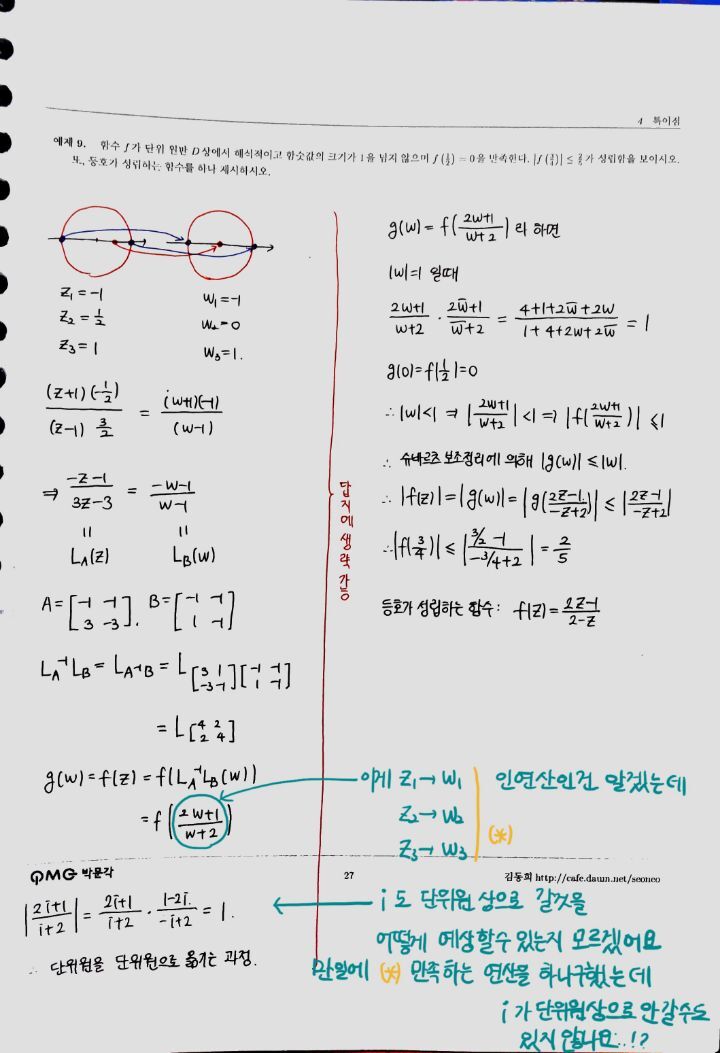 4 특이점
예제 9. 함수 f가 단위 원반 D상에서 해석적이고 함숫값의 크기가 1을 넘지 않으며 f(1/2) = 0을 만족한다. |f(3/4)| ≤ 2/5가 성립함을 보이시오.
또, 등호가 성립하는 함수를 하나 제시하시오.
z₁ = -1
z₂ = 1/2
z₃ = 1
w₁ = -1
w₂ = 0
w₃ = 1.
(z+1)(-1/2) / (z-1) 3/2 = (w+1)(-1) / (w-1)
⇒ -z-1 / 3z-3 = -w-1 / w-1
= =
L_A(z) L_B(w)
A = [-1 -1; 3 -3], B = [-1 -1; 1 -1]
L_A⁻¹L_B = L_A⁻¹B = L[3 1; -3 -1][-1 -1; 1 -1]
= L[4 2; 2 4]
g(w) = f(z) = f(L_A⁻¹L_B(w))
= f(2w+1 / w+2)
답지에 생략 가능
g(w) = f(2w+1 / w+2) 라 하면
|w|=1 일때
2w+1 / w+2 · 2w̄+1 / w̄+2 = 4+1+2w̄+2w / 1+4+2w+2w̄ = 1
g(0) = f(1/2) = 0
∴ |w|<1 ⇒ |2w+1 / w+2| < 1 ⇒ |f(2w+1 / w+2)| ≤ 1
∴ 슈바르츠 보조정리에 의해 |g(w)| ≤ |w|.
∴ |f(z)| = |g(w)| = |g(2z-1 / -z+2)| ≤ |2z-1 / -z+2|
∴ |f(3/4)| ≤ |3/2 -1 / -3/4+2| = 2/5
등호가 성립하는 함수: f(z) = 2z-1 / 2-z
이게 z₁→w₁ 인연산인건 알겠는데
z₂→w₂
(*)
z₃→w₃
PMG 박문각
27
김동희 http://cafe.daum.net/seoneo
|2i+1 / i+2| = 2i+1 / i+2 · 1-2i / -i+2 = 1.
∴ 단위원을 단위원으로 옮기는 과정.
i도 단위원상으로 갈것을
어떻게 예상할수 있는지 모르겠어요
만일에 (*) 만족하는 연산을 하나구했는데
i가 단위원상으로 안갈수도
있지 않나요..!?